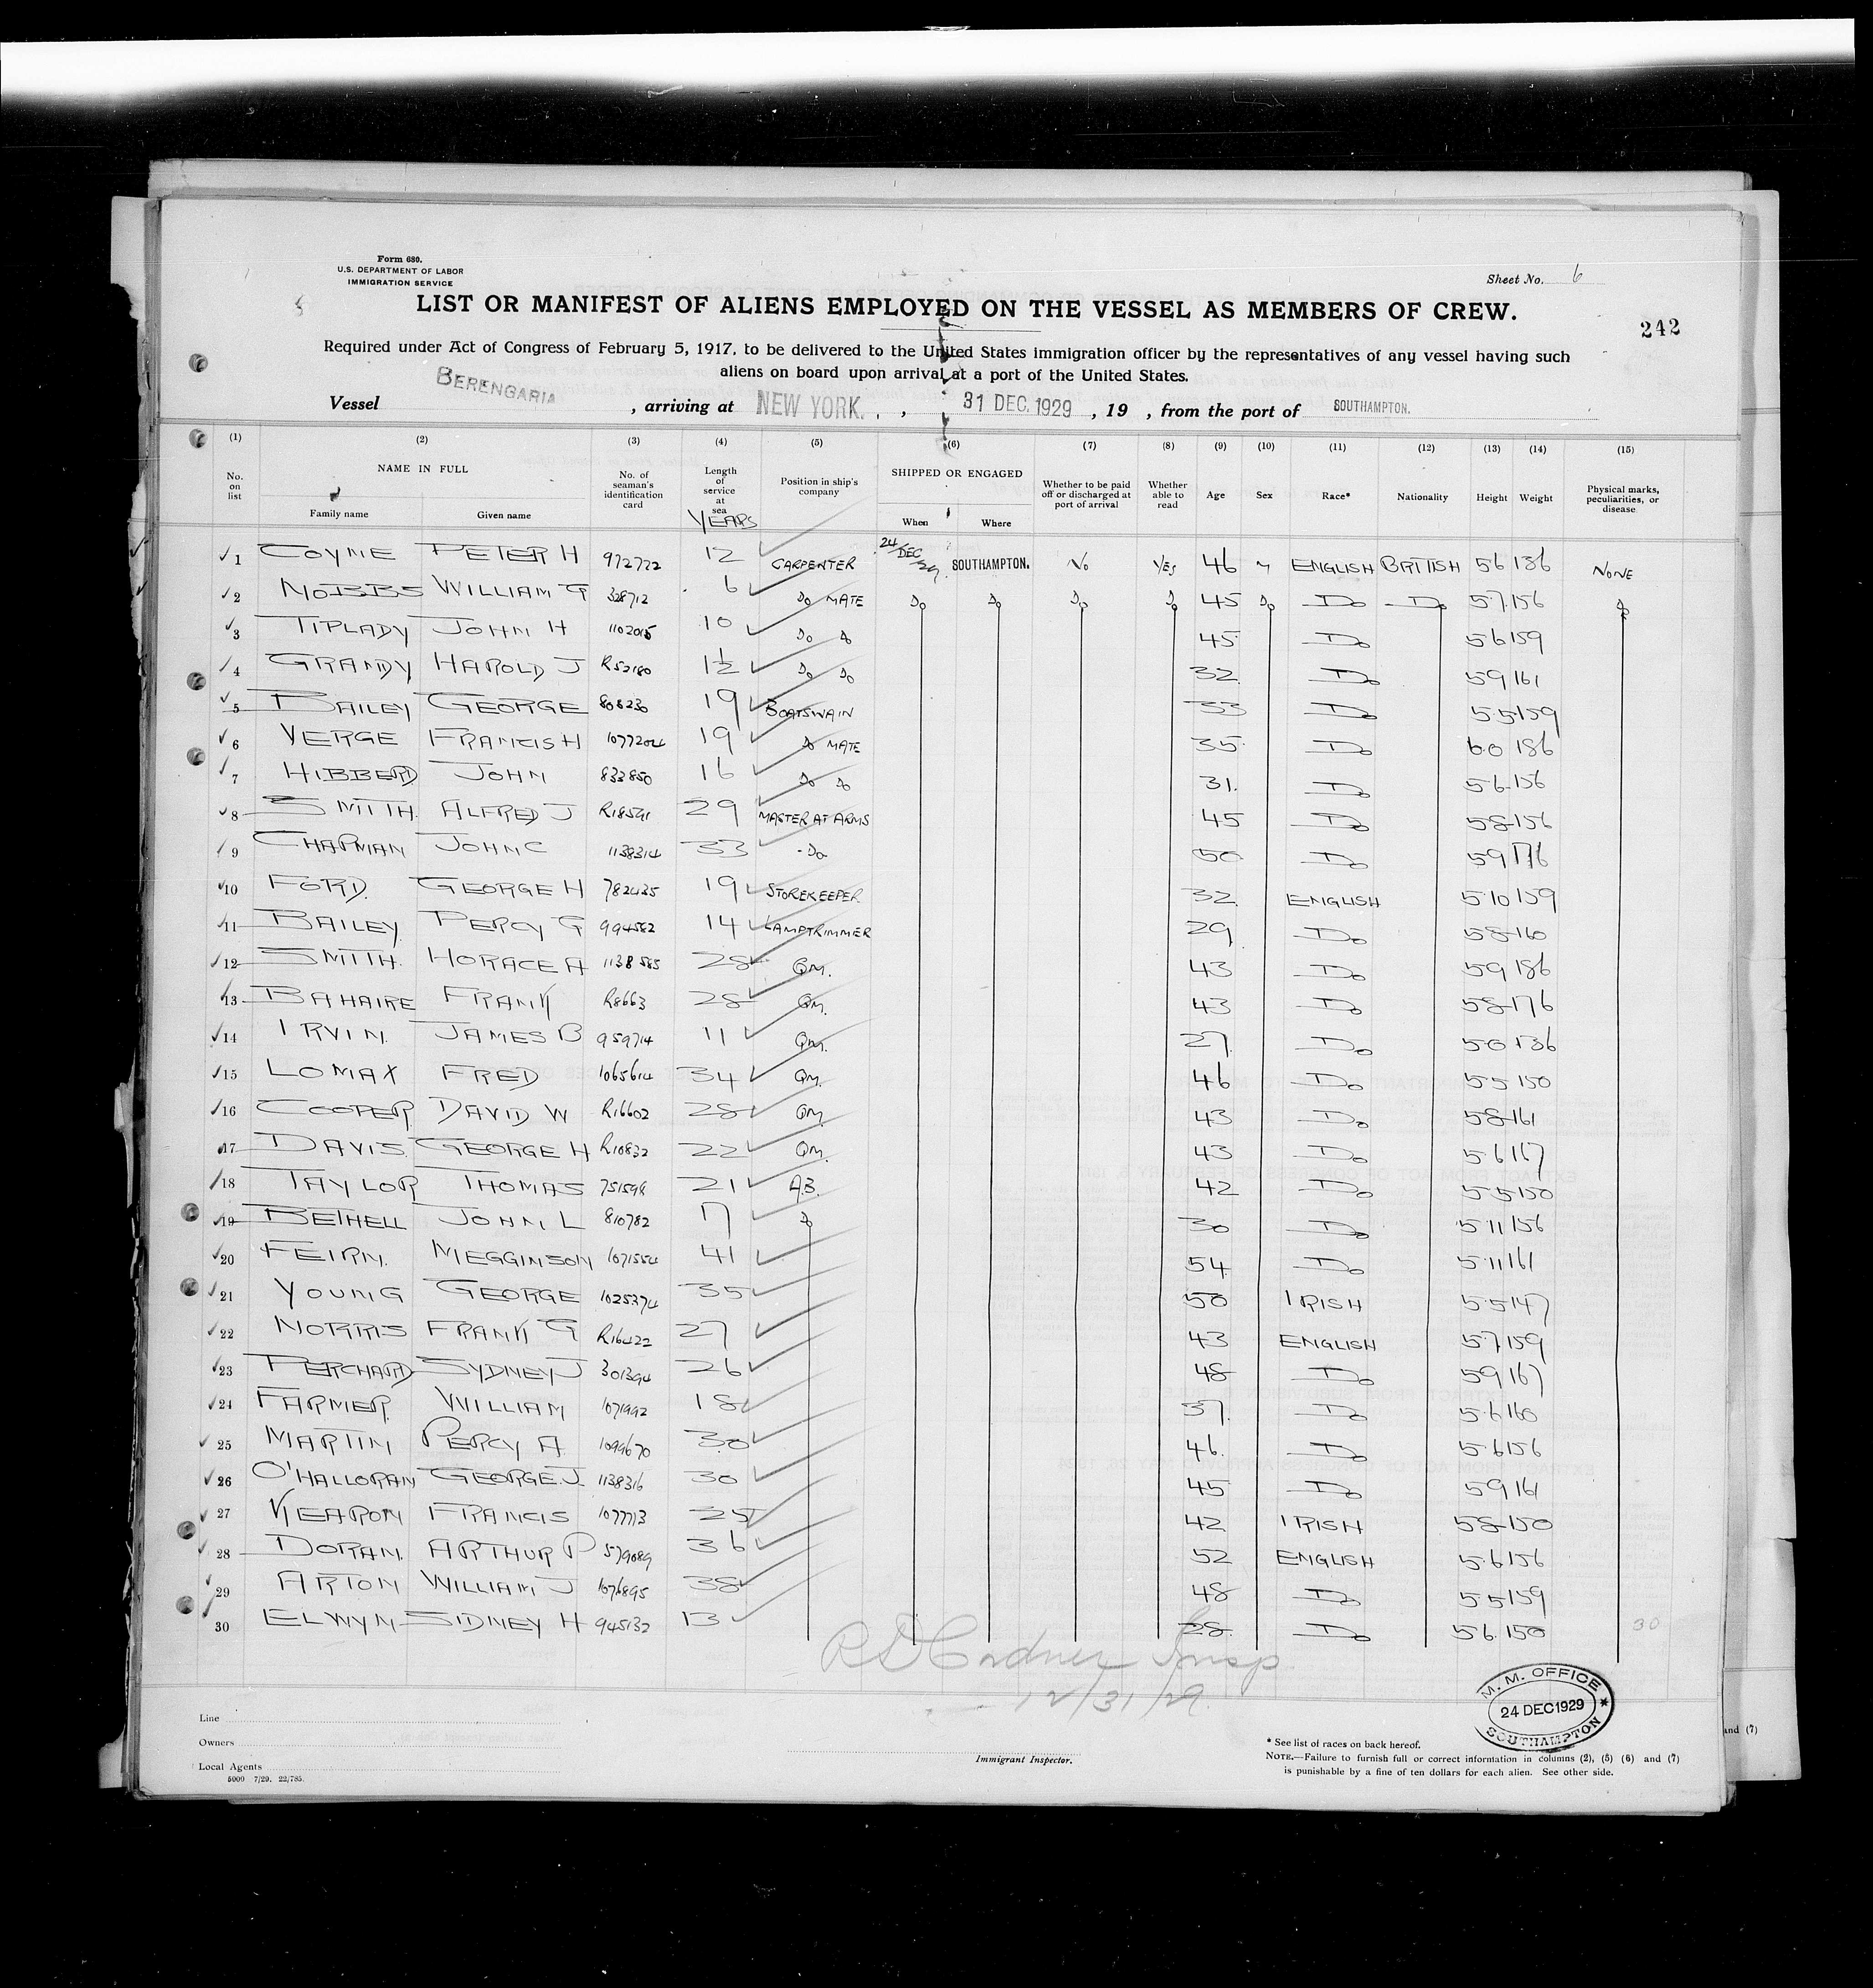 Form 680.
U.S. DEPARTMENT OF LABOR
IMMIGRATION SERVICE
Sheet No. 6
LIST OR MANIFEST OF ALIENS EMPLOYED ON THE VESSEL AS MEMBERS OF CREW.
242
Required under Act of Congress of February 5, 1917, to be delivered to the United States immigration officer by the representatives of any vessel having such
aliens on board upon arrival at a port of the United States.
Vessel BERENGARIA, arriving at NEW YORK., 31 DEC. 1929, 19 , from the port of SOUTHAMPTON.
(1) (2) (3) (4) (5) (6) (7) (8) (9) (10) (11) (12) (13) (14) (15)
No. on list NAME IN FULL Family name Given name No. of seaman's identification card Length of service at sea YEARS Position in ship's company SHIPPED OR ENGAGED When Where Whether to be paid off or discharged at port of arrival Whether able to read Age Sex Race* Nationality Height Weight Physical marks, peculiarities, or disease
1 COYNE PETER H 972722 12 CARPENTER 24/DEC/29. SOUTHAMPTON. No YES 46 M ENGLISH BRITISH 5 6 136 NONE
2 NOBBS WILLIAM G 328712 6 Do MATE Do Do Do Do 45 Do Do Do 5.7. 156 Do
3 TIPLADY JOHN H 1102015 10 Do Do 45 Do 5 6 159
4 GRANDY HAROLD J R52180 1½ Do Do 32 Do 5 9 161
5 BAILEY GEORGE 808230 19 BOATSWAIN 33 Do 5.5 159
6 VERGE FRANCIS H 1077204 19 Do MATE 35 Do 6.0 186
7 HIBBERD JOHN 833850 16 Do Do 31. Do 5 6 156
8 SMITH. ALFRED J R18591 29 MASTER AT ARMS 45 Do 5 8 156
9 CHAPMAN JOHN C 1138314 33 Do 50 Do 5 9 176
10 FORD. GEORGE H 782435 19 STOREKEEPER 32. ENGLISH 5 10 159
11 BAILEY PERCY G 994582 14 LAMPTRIMMER 29 Do 5 8 160
12 SMITH. HORACE A 1138585 28 QM. 43 Do 5 9 186
13 BAHAIRE FRANK R8663 28 QM. 43 Do 5 8 176
14 IRVIN. JAMES B 959714 11 QM. 27. Do 136
15 LOMAX FRED 1065614 34 QM. 46 Do 5 5 150
16 COOPER DAVID W R16602 28 QM. 43 Do 5 8 161
17 DAVIS. GEORGE H R10832 22 QM. 43 Do 5 6 167
18 TAYLOR THOMAS 751598 21 A.B. 42 Do 5 5 150
19 BETHELL JOHN L 810782 17 Do 30 Do 5 11 156
20 FEIRN. MEGGINSON 1071554 41 54 Do 5 11 161
21 YOUNG GEORGE 1025374 35 50 IRISH 5 5 147
22 NORRIS FRANK G R16422 27 43 ENGLISH 5.7 159
23 PERCHARD SYDNEY J 301394 26 48 Do 5 9 167
24 FARMER. WILLIAM 1071992 18 37. Do 5.6 160
25 MARTIN PERCY A 1099670 30 46. Do 5.6 156
26 O'HALLORAN GEORGE. J. 1138316 30 45 Do 5 9 161
27 KEARON FRANCIS 1077713 25 42 IRISH 5 8 150
28 DORAN. ARTHUR P 579089 36 52 ENGLISH 5.6 156
29 ARTON WILLIAM J 1076895 38 48 Do 5 5 159
30 ELWYN SIDNEY H 945132 13 28. Do 5 6. 150
30
Insp
12/31/29.
M. M. OFFICE
24 DEC 1929
SOUTHAMPTON
Line
Owners
Local Agents
5000 7/29. 22/785.
Immigrant Inspector.
* See list of races on back hereof.
NOTE.—Failure to furnish full or correct information in columns (2), (5) (6) and (7)
is punishable by a fine of ten dollars for each alien. See other side.
and (7)